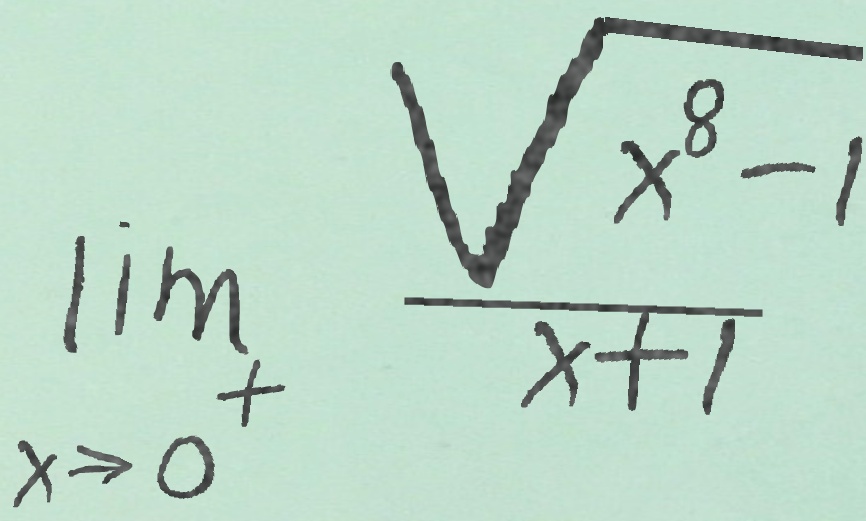 lim_{x \to 0^+} \frac{\sqrt{x^8 - 1}}{x + 1}